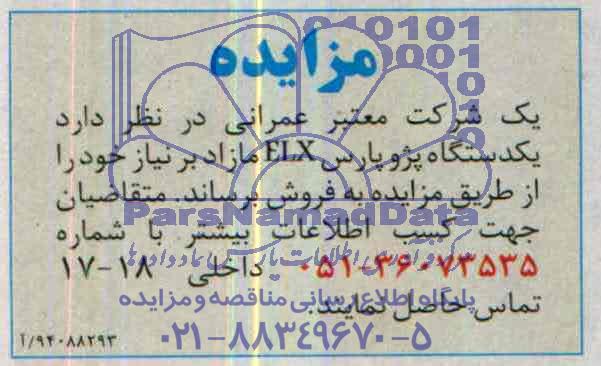 مزایده
یک شرکت معتبر عمرانی در نظر دارد
یکدستگاه پژو پارس ELX مازاد بر نیاز خود را
از طریق مزایده به فروش برساند. متقاضیان
ParsNamadData
جهت کسب اطلاعات بیشتر با شماره
۰۵۱-۳۶۰۷۳۵۳۵ داخلی ۱۸-۱۷
پایگاه اطلاع رسانی مناقصه و مزایده
تماس حاصل نمایند.
۰۲۱-۸۸۳۴۹۶۷۰-۵
۹۴۰۸۸۲۹۳/آ